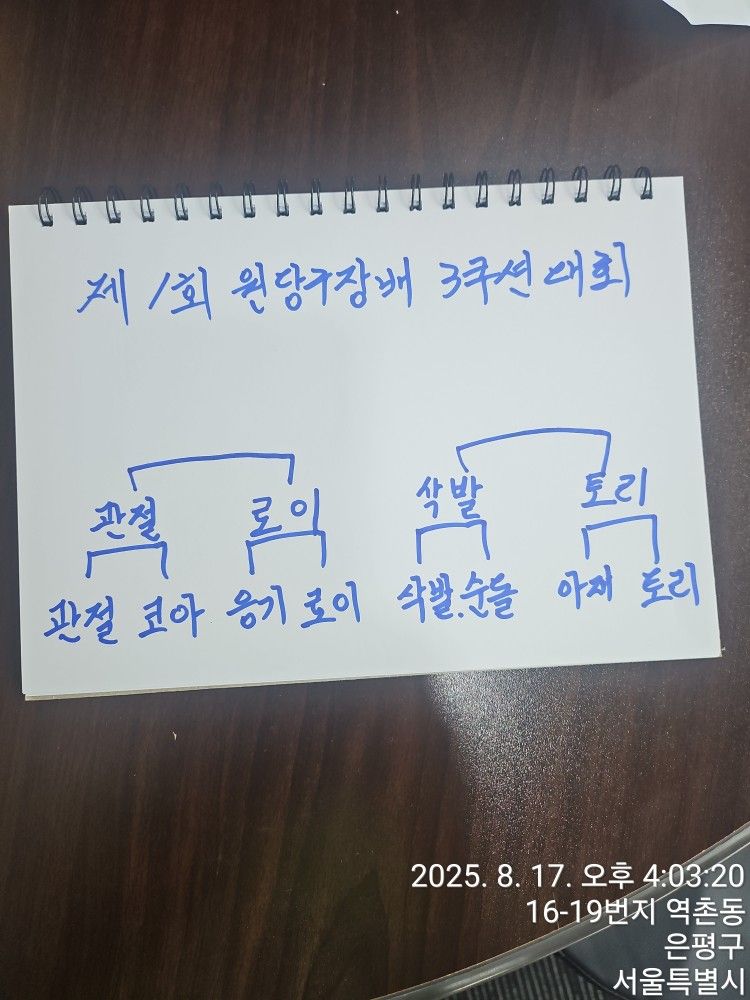 제 1회 원당구장배 3쿠션대회
관절 로이 삭발 토리
관절 코아 응기 로이 삭발.순돌 아재 토리
2025. 8. 17. 오후 4:03:20
16-19번지 역촌동
은평구
서울특별시